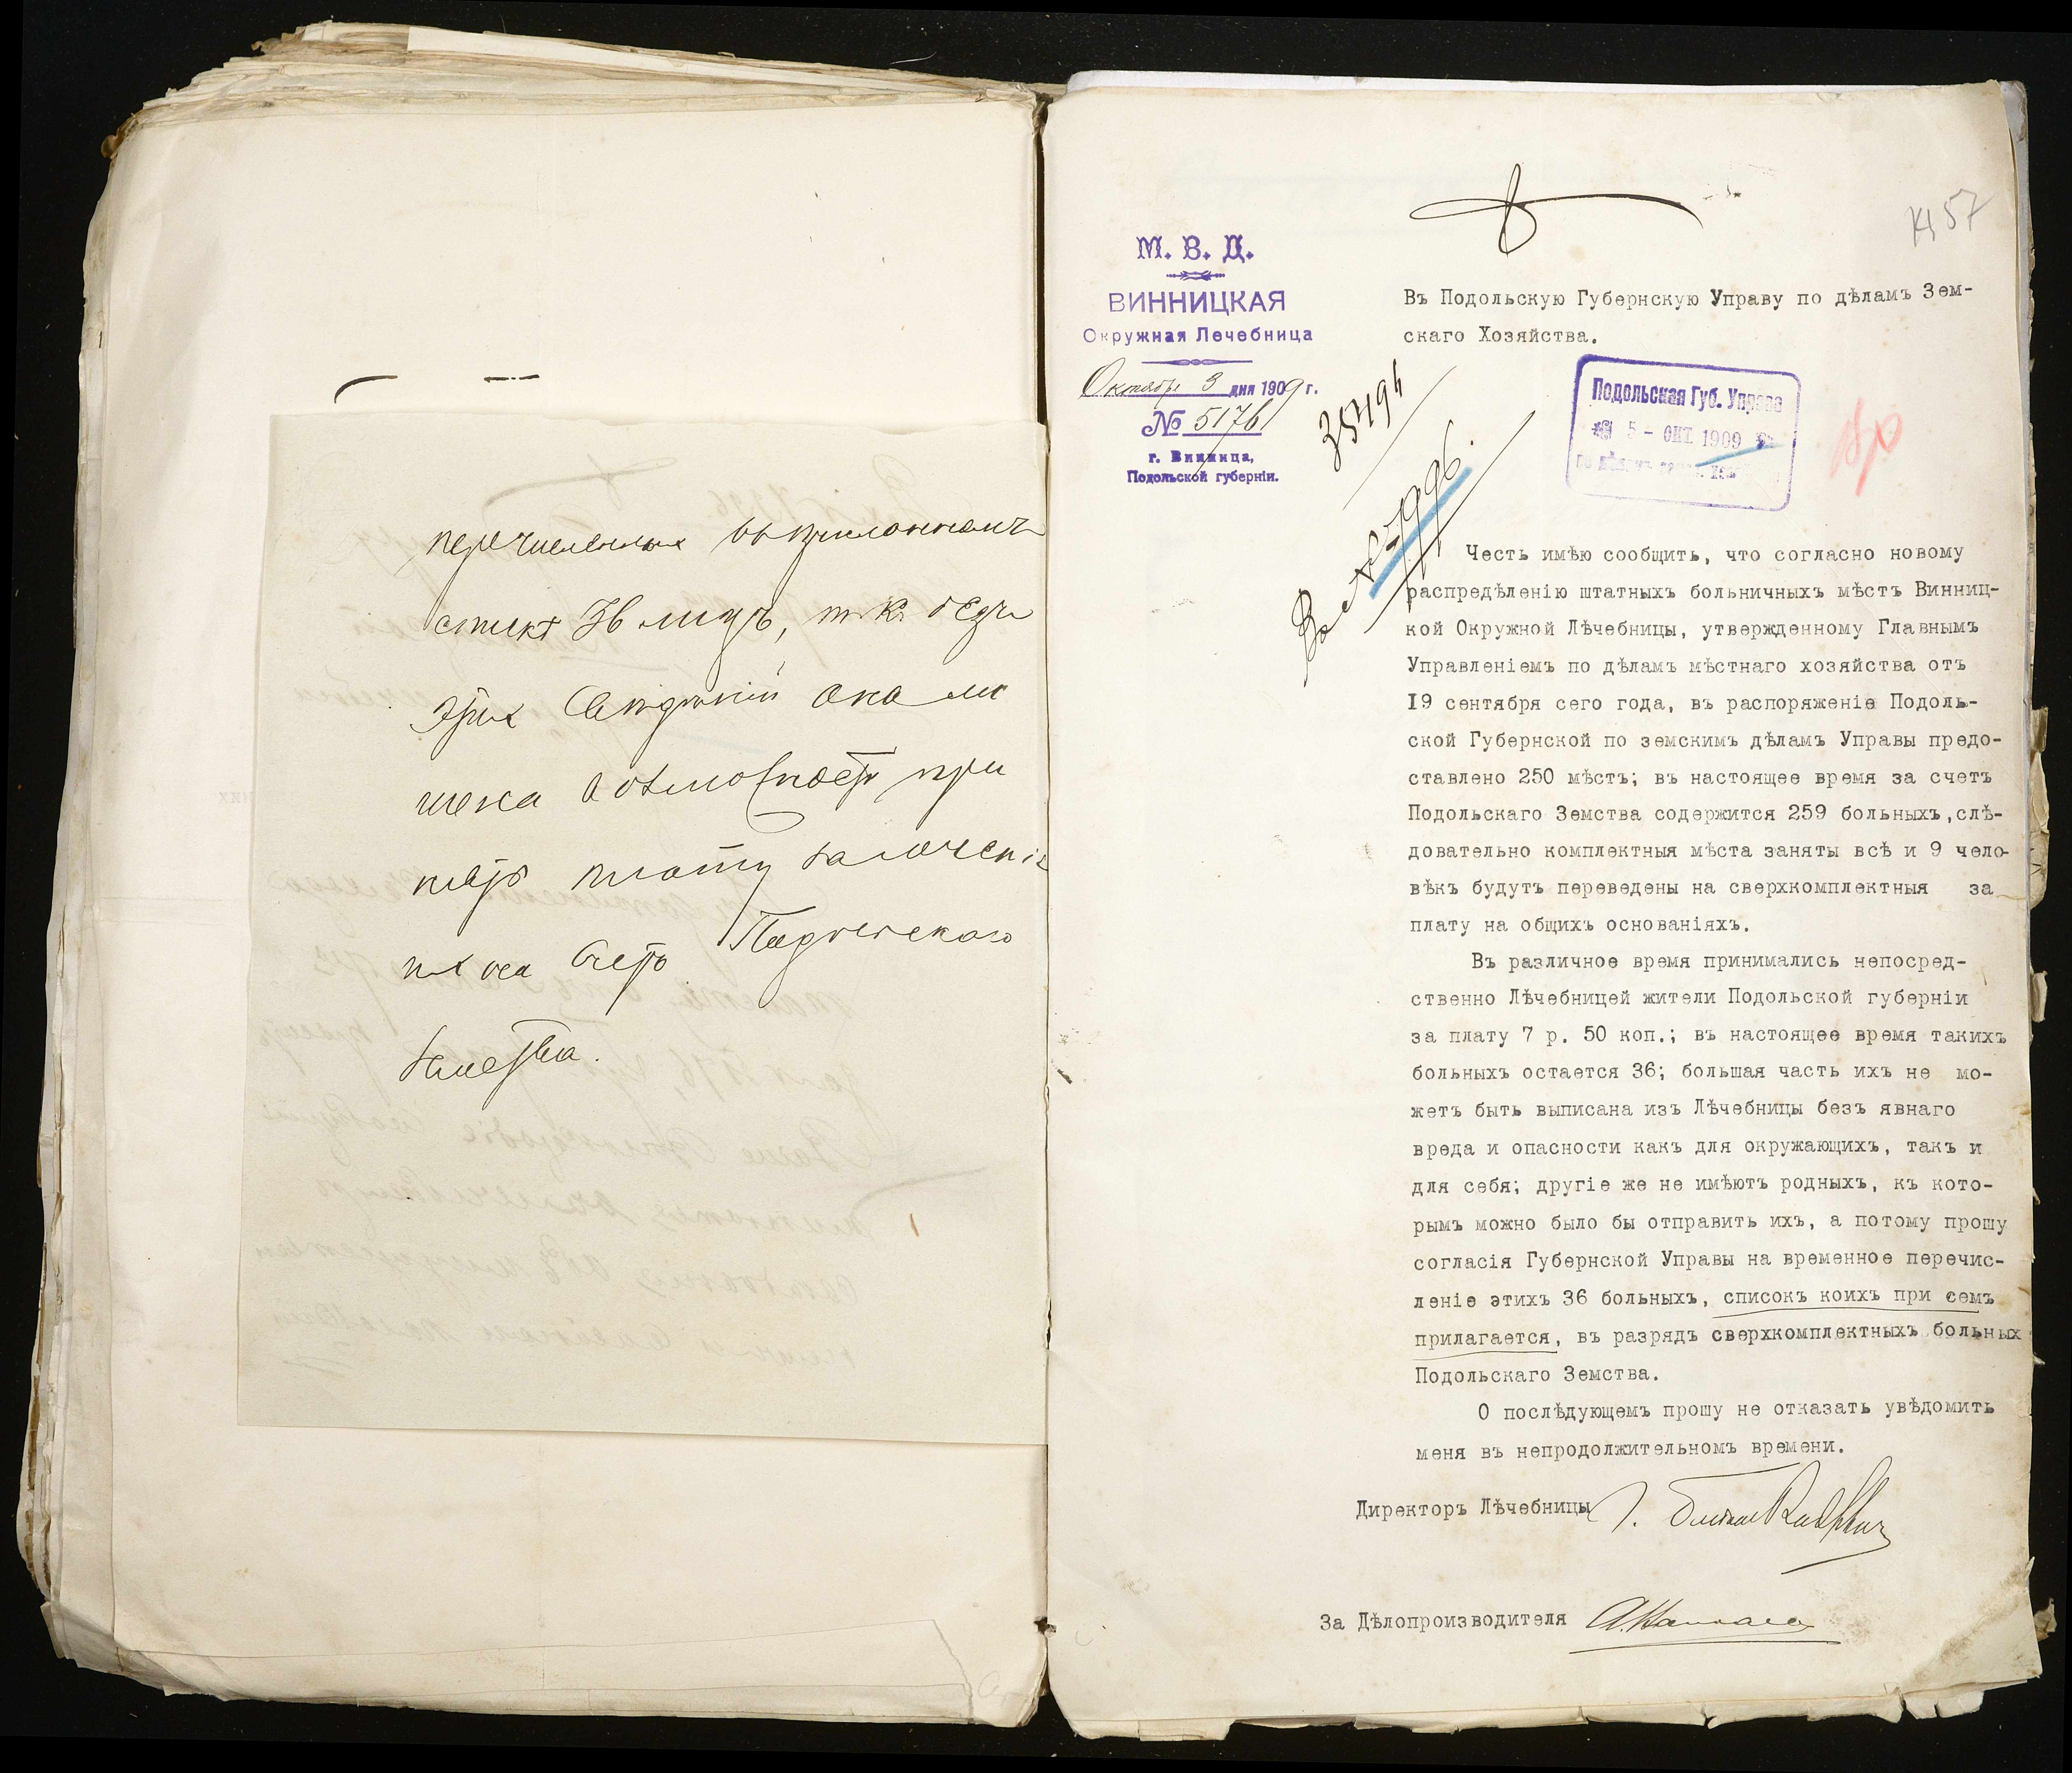 перечисленныхъ въ приложенномъ
списке 36 лицъ, т. к. безъ
этихъ сведений она ли
шена возможности при
нять плату за лечение
ихъ на счетъ Подольскаго
Земства.
57
М. В. Д.
ВИННИЦКАЯ
Окружная Лечебница
Октября 3 дня 1909 г.
№ 5176
г. Винница,
Подольской губерніи.
Въ Подольскую Губернскую Управу по дѣламъ Зем-
скаго Хозяйства.
Подольская Губ. Управа
5 - ОКТ. 1909
Честь имѣю сообщить, что согласно новому
распредѣленію штатныхъ больничныхъ мѣстъ Винниц-
кой Окружной Лѣчебницы, утвержденному Главнымъ
Управленіемъ по дѣламъ мѣстнаго хозяйства отъ
19 сентября сего года, въ распоряженіе Подоль-
ской Губернской по земскимъ дѣламъ Управы предо-
ставлено 250 мѣстъ; въ настоящее время за счетъ
Подольскаго Земства содержится 259 больныхъ,слѣ-
довательно комплектныя мѣста заняты всѣ и 9 чело-
вѣкъ будутъ переведены на сверхкомплектныя за
плату на общихъ основаніяхъ.
Въ различное время принимались непосред-
ственно Лѣчебницей жители Подольской губерніи
за плату 7 р. 50 коп.; въ настоящее время такихъ
больныхъ остается 36; большая часть ихъ не мо-
жетъ быть выписана изъ Лѣчебницы безъ явнаго
вреда и опасности какъ для окружающихъ, такъ и
для себя; другіе же не имѣютъ родныхъ, къ кото-
рымъ можно было бы отправить ихъ, а потому прошу
согласія Губернской Управы на временное перечис-
леніе этихъ 36 больныхъ, списокъ коихъ при семъ
прилагается, въ разрядъ сверхкомплектныхъ больных
Подольскаго Земства.
О послѣдующемъ прошу не отказать увѣдомить
меня въ непродолжительномъ времени.
Директоръ Лѣчебницы
За Дѣлопроизводителя